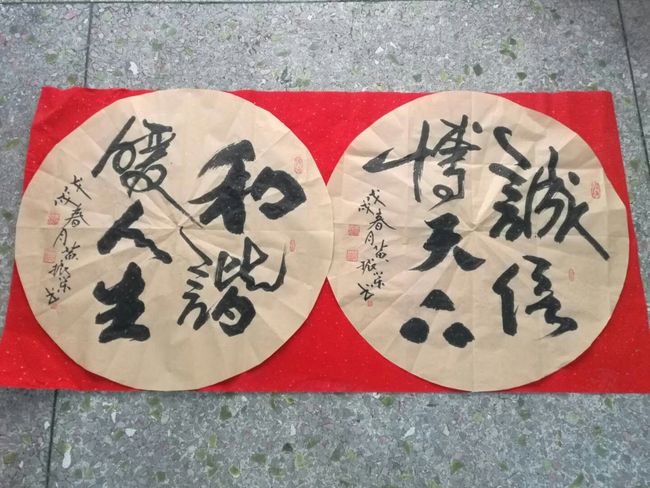 誠信
博天下
戊戌春月黄振荣书
和諧
暖人生
戊戌春月黄振荣书